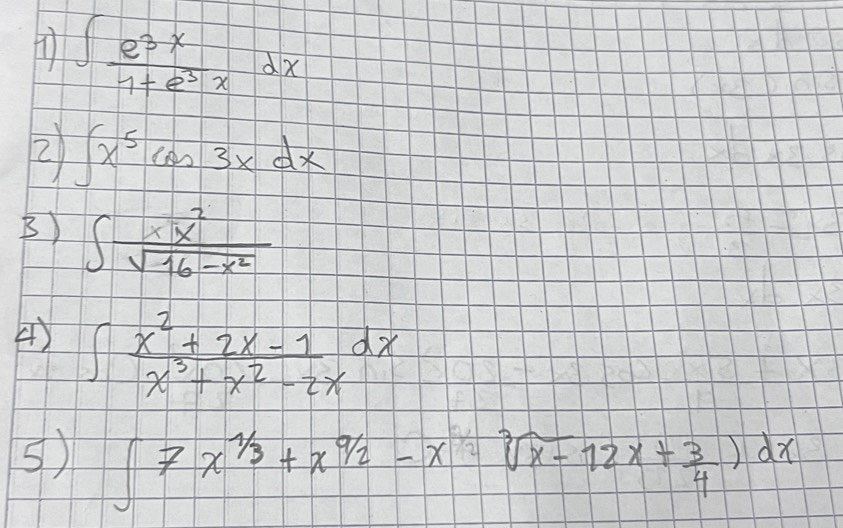 1) ∫ e³x / 1+e³x dx
2) ∫ x⁵ cos 3x dx
3) ∫ x x² / √16-x²
4) ∫ x² + 2x - 1 / x³ + x² - 2x dx
5) ∫ 7 x^1/3 + x^9/2 - x ³√x - 12x + 3/4 ) dx